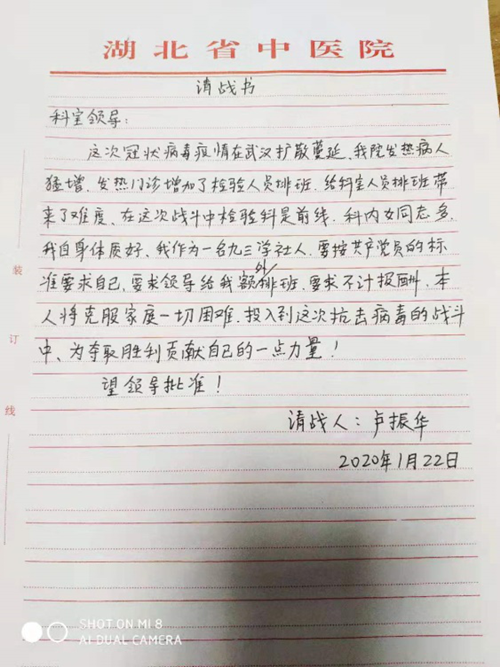 湖北省中医院
请战书
科室领导：
这次冠状病毒疫情在武汉扩散蔓延、我院发热病人
猛增、发热门诊增加了检验人员排班、给科室人员排班带
来了难度、在这次战斗中检验科是前线、科内女同志多、
我自身体质好、我作为一名九三学社人、要按共产党员的标
准要求自己，要求领导给我额外排班，要求不计报酬，本
人将克服家庭一切困难，投入到这次抗击病毒的战斗
中、为夺取胜利贡献自己的一点力量！
望领导批准！
请战人：卢振华
2020年1月22日
装
订
线
SHOT ON MI 8
AI DUAL CAMERA